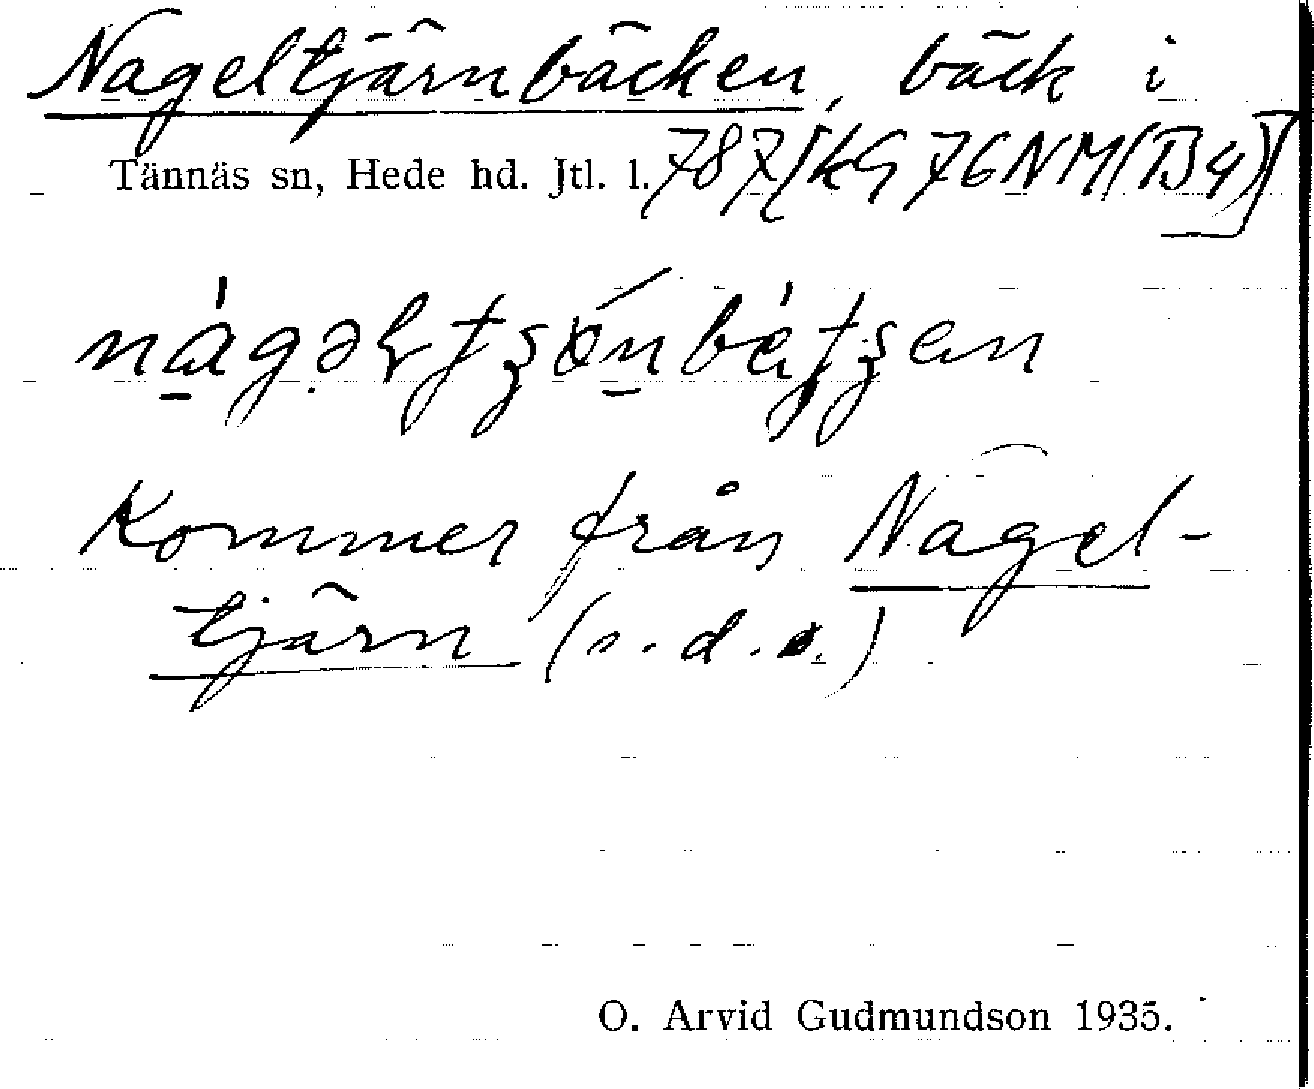 Nageltjärnbäcken, bäck i
Tännäs sn, Hede hd. Jtl. l. 787 [KG 76 NM (B4)]
Kommer från Nagel-
tjärn (s.d.o.)
O. Arvid Gudmundson 1935.